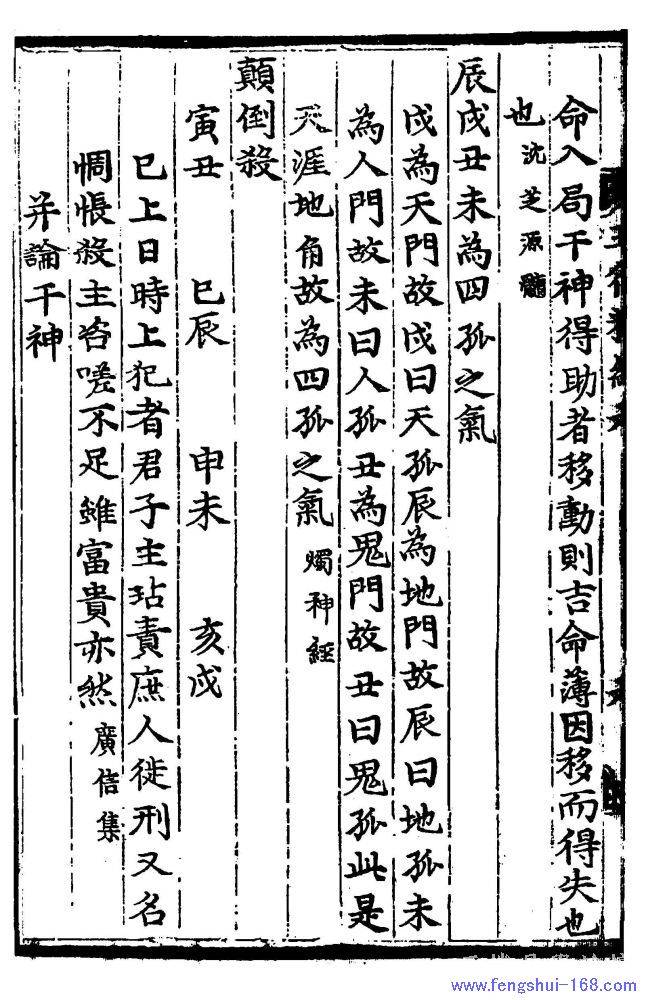 命入局干神得助者移動則吉命薄因移而得失也
也沈芝源髓
辰戌丑未為四孤之氣
戌為天門故戌曰天孤辰為地門故辰曰地孤未
為人門故未曰人孤丑為鬼門故丑曰鬼孤此是
天涯地角故為四孤之氣 燭神經
顛倒殺
寅丑 巳辰 申未 亥戌
已上日時上犯者君子主玷責庶人徙刑又名
惆悵殺主咨嗟不足雖富貴亦然 廣信集
并論干神
www.fengshui-168.com